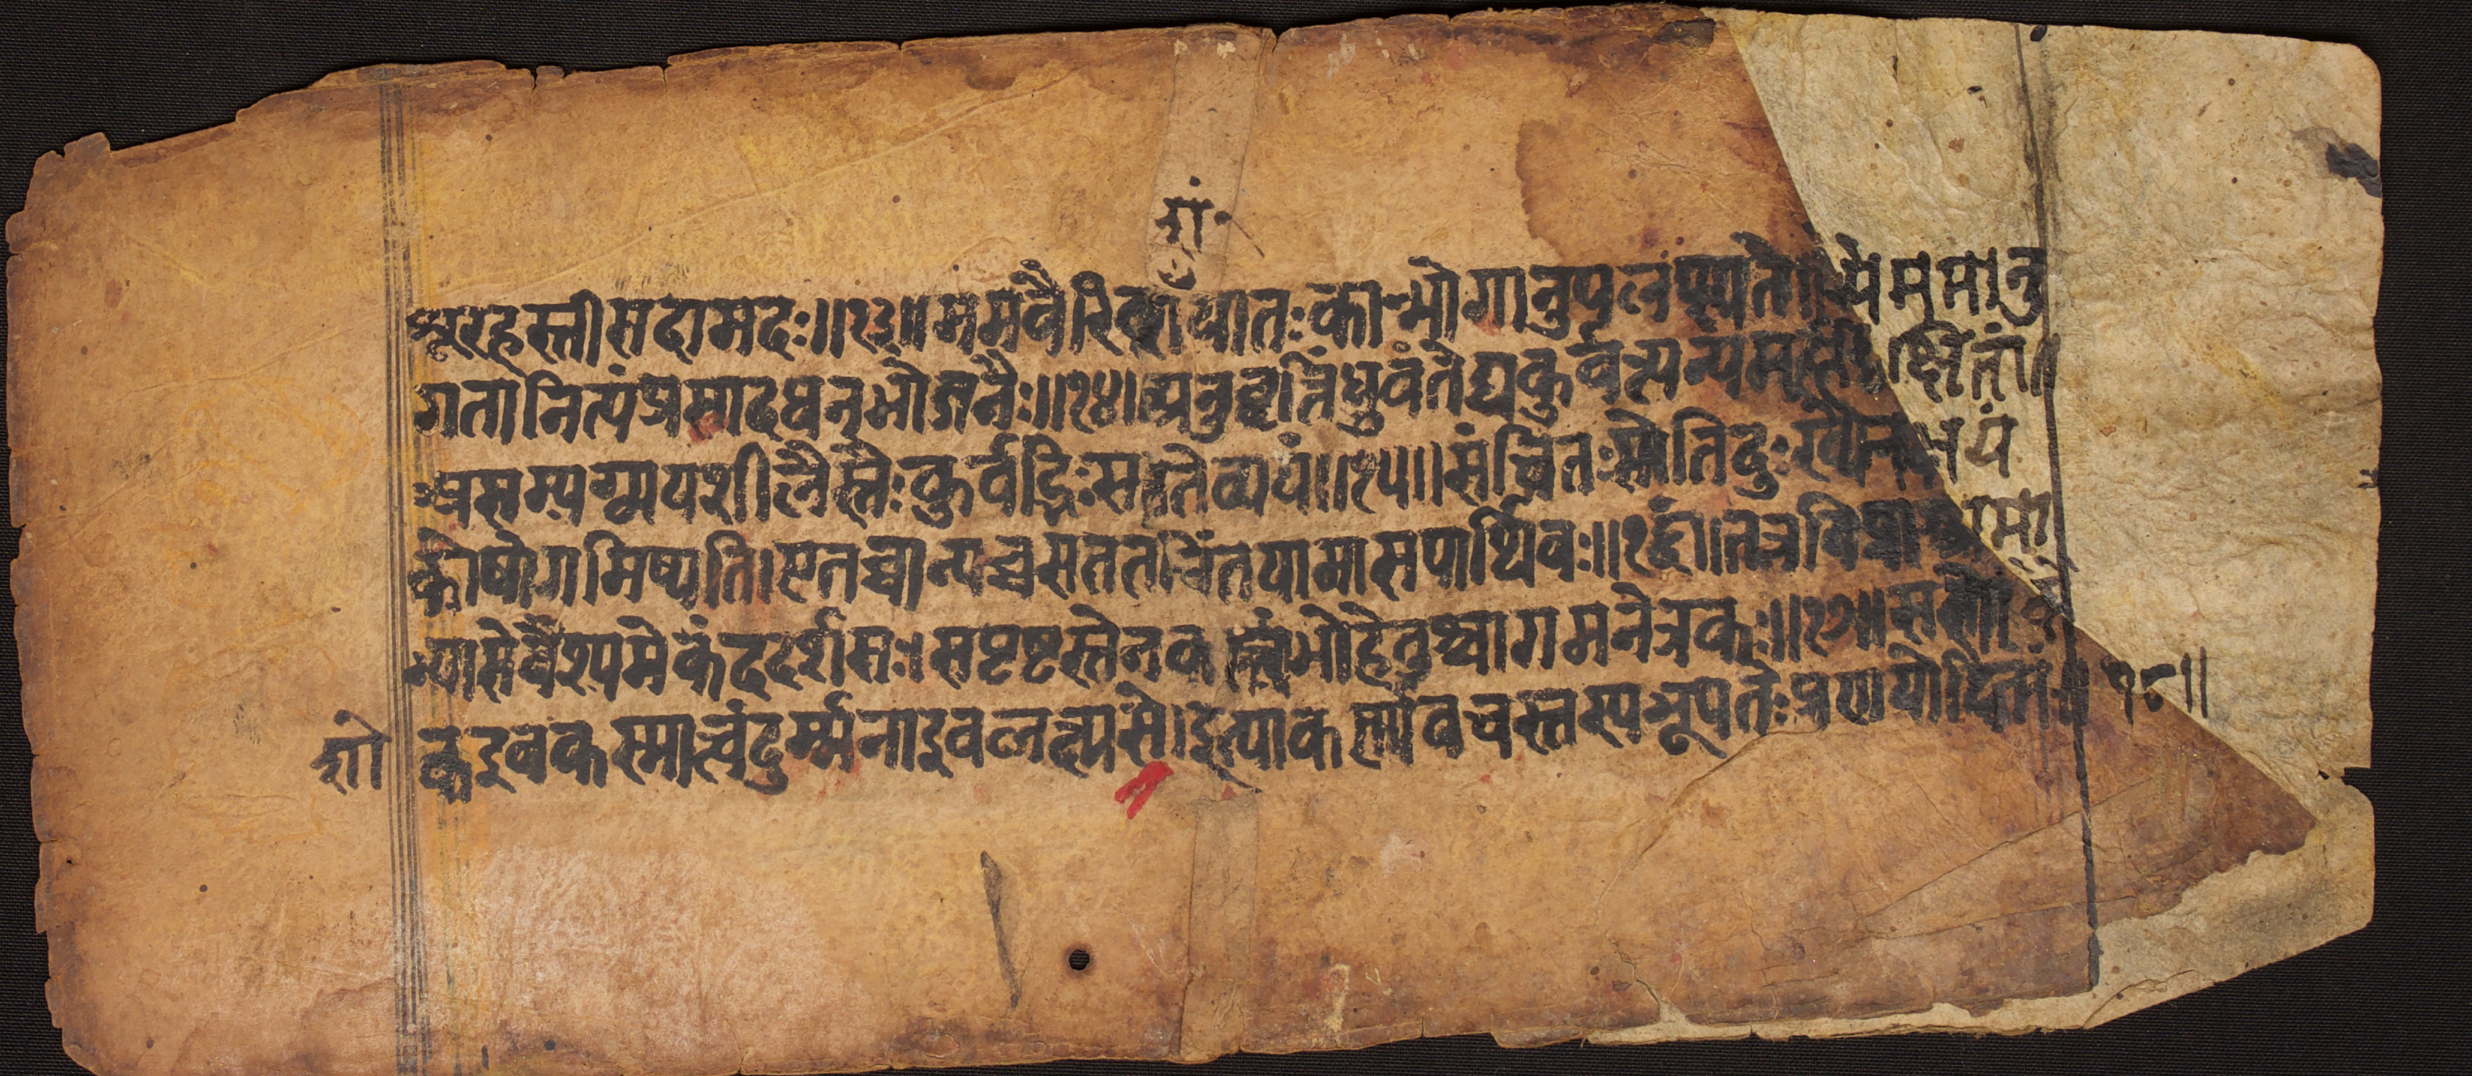 शं
शूरहस्ती सदामदः॥१३॥ मम वैरिवशं यातः का न्भोगानुपलप्स्यते। ये ममानु
गता नित्यं प्रसादधनभोजनैः॥१४॥ अनुवृत्तिं ध्रुवं तेद्य कुर्वन्त्यन्यम क्षितां॥
असम्यग्व्ययशीलैस्तैः कुर्वद्भिः सततं व्ययं॥१५॥ संचितः सोतिदुःखेन क्षयं
कोषो गमिष्यति। एतच्चान्यच्च सततं चिंतयामास पार्थिवः॥१६॥ तत्र विप्राश्रमा
भ्यासे वैश्यमेकं ददर्श सः। स पृष्टस्तेन कस्त्वं भो हेतुश्चागमनेत्रकः॥१७॥ सशो
शो क इव कस्मात्त्वं दुर्म्मना इव लक्ष्यसे। इत्याकर्ण्य वचस्तस्य भूपतेः प्रणयोदितं॥ १८॥